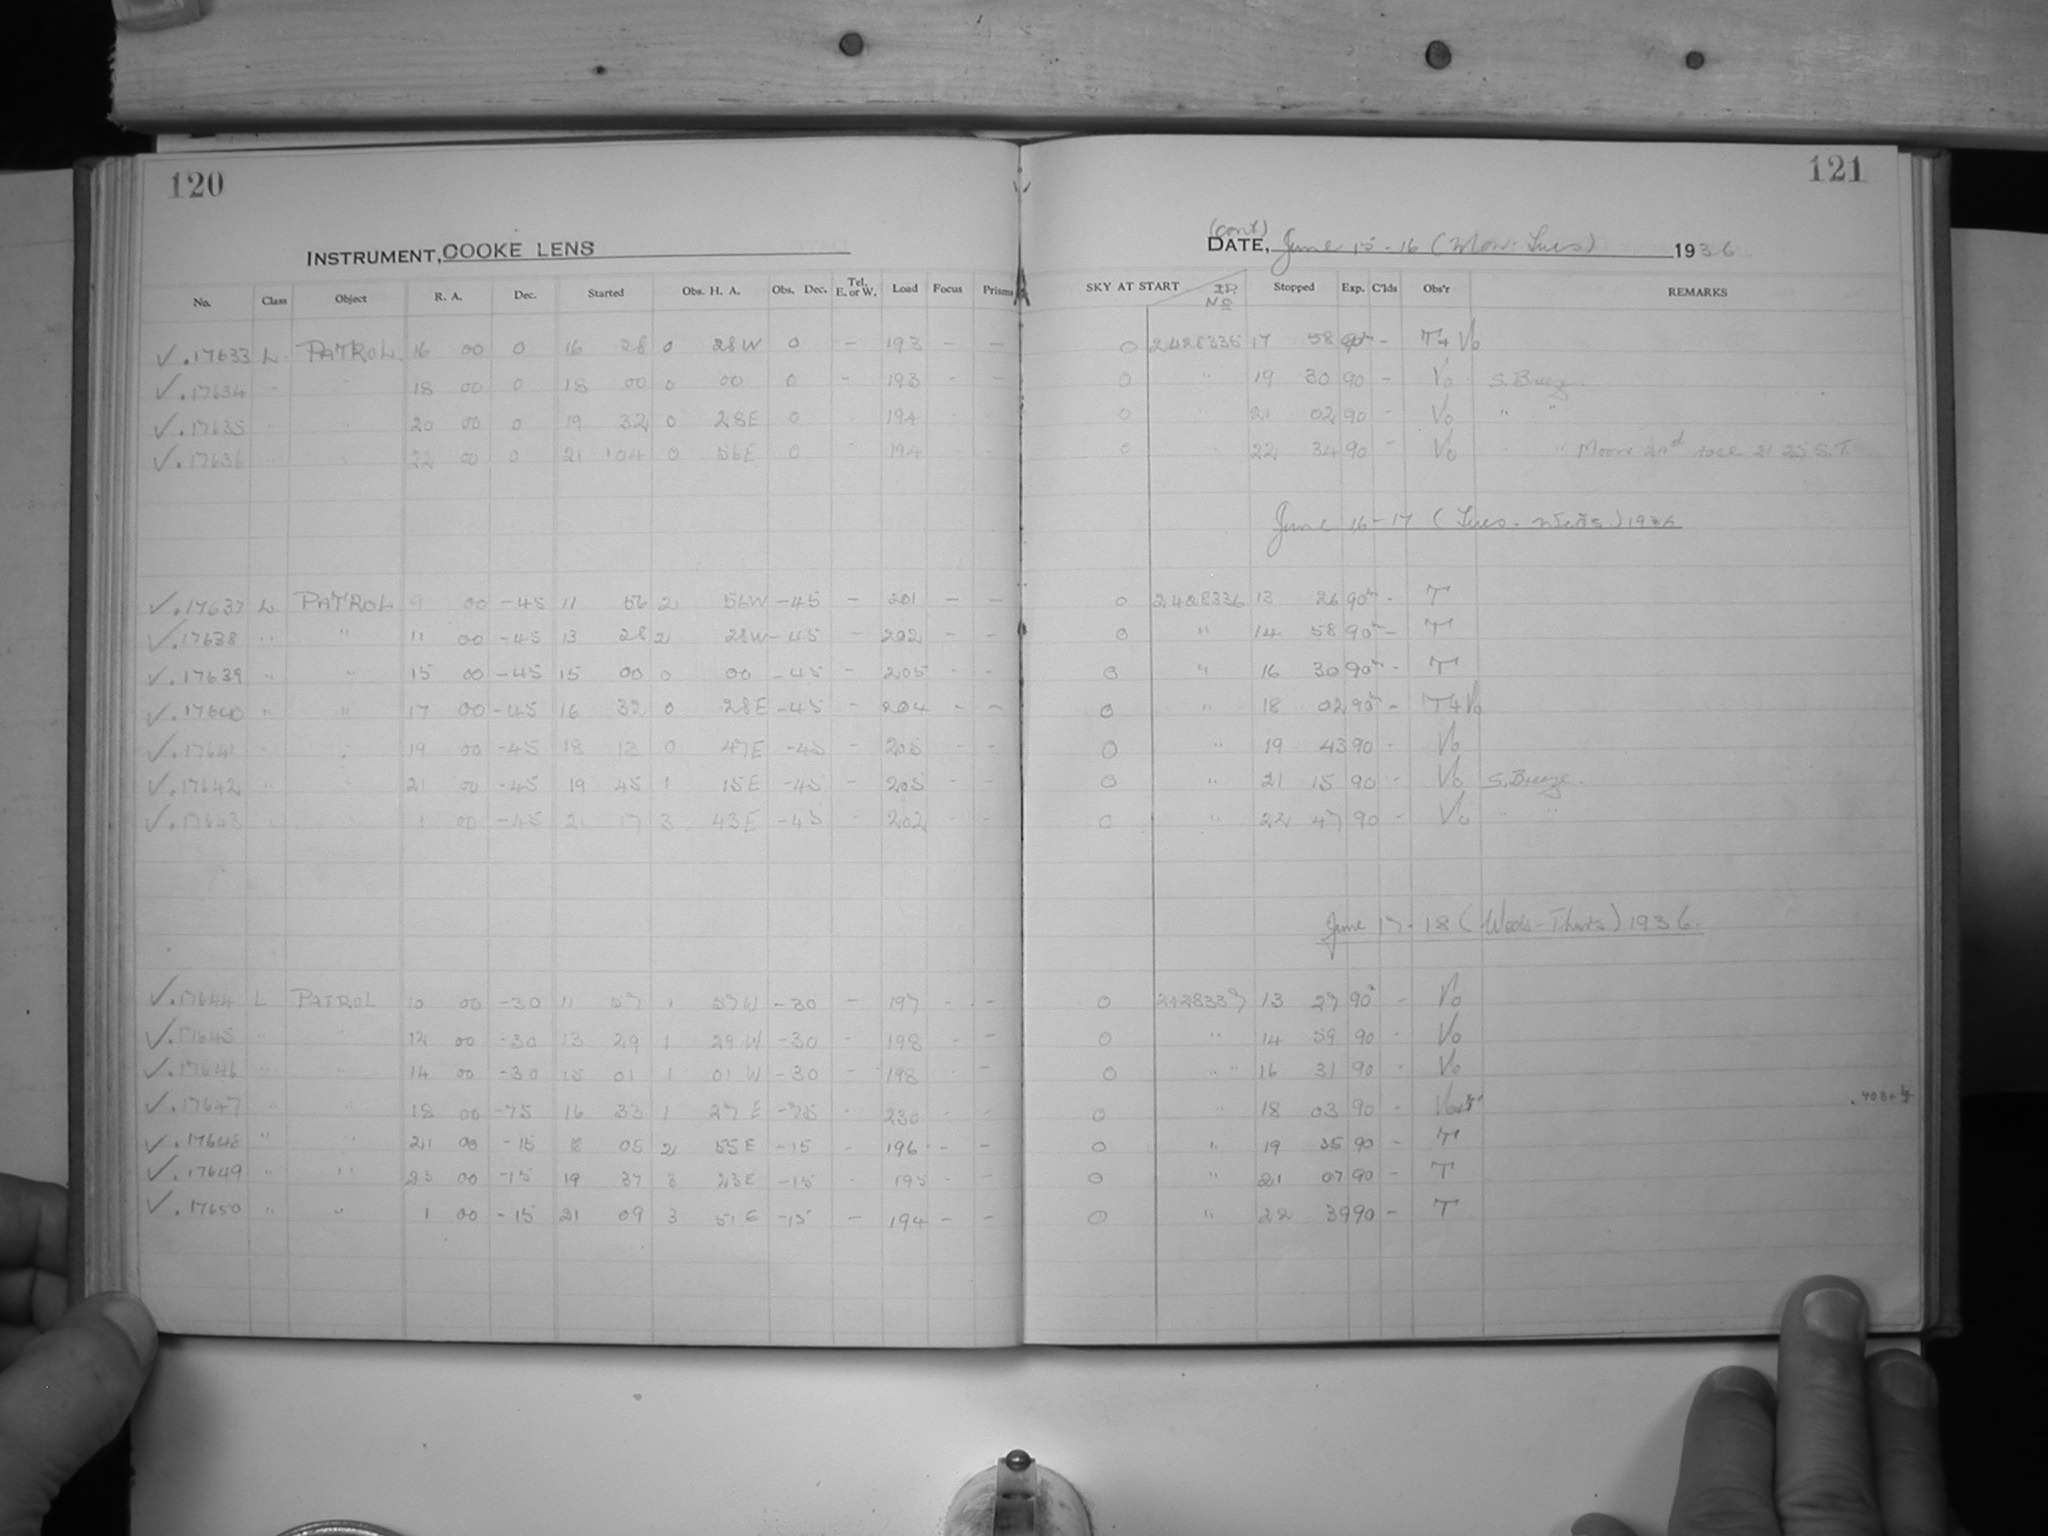 120
121
INSTRUMENT, COOKE LENS
(cont)
DATE, June 15-16 (Mon-Tues) 1936
No. Class Object R. A. Dec. Started Obs. H. A. Obs. Dec. Tel. E. or W. Load Focus Prisms SKY AT START J.D. No Stopped Exp. C'lds Obs'r REMARKS
✓.17633 L. PATROL. 16 00 0 16 28 0 28W 0 - 193 - - 0 2428335 17 58 90m - T+Vo
✓.17634 " " 18 00 0 18 00 0 00 0 - 193 - - 0 " 19 30 90 - Vo S. Breeze.
✓.17635 " " 20 00 0 19 32 0 28E 0 194 - - 0 " 21 02 90 - Vo " "
✓.17636 " " 22 00 0 21 04 0 56E 0 - 194 - - 0 " 22 34 90 - Vo " " Moon rose 21 25 S.T.
June 16-17 (Tues-Weds.) 1936
✓.17637 L PATROL 9 00 -45 11 56 2 56W -45 - 201 - - 0 2428336 13 26 90m - T
✓.17638 " " 11 00 -45 13 28 2 28W -45 - 202 - - 0 " 14 58 90m - T
✓.17639 " " 15 00 -45 15 00 0 00 -45 - 205 - - 0 " 16 30 90m - T
✓.17640 " " 17 00 -45 16 32 0 28E -45 - 204 - - 0 " 18 02 90m - T+Vo
✓.17641 " " 19 00 -45 18 13 0 47E -45 - 205 - - 0 " 19 43 90 - Vo
✓.17642 " " 21 00 -45 19 45 1 15E -45 - 205 - - 0 " 21 15 90 - Vo S. Breeze.
✓.17643 " " 1 00 -45 21 17 3 43E -45 - 202 - - 0 " 22 47 90 - Vo " "
June 17-18 (Weds-Thurs) 1936.
✓.17644 L PATROL 10 00 -30 11 57 1 57W -30 - 197 - - 0 2428337 13 27 90m - Vo
✓.17645 " " 12 00 -30 13 29 1 29W -30 - 198 - - 0 " 14 59 90 - Vo
✓.17646 " " 14 00 -30 15 01 1 01W -30 - 198 - - 0 " " 16 31 90 - Vo
✓.17647 " " 18 00 -75 16 33 1 27E -75 - 230 - - 0 " 18 03 90 -
✓.17648 " " 21 00 -15 18 05 2 55E -15 - 196 - - 0 " 19 35 90 - T
✓.17649 " " 23 00 -15 19 37 3 23E -15 - 195 - - 0 " 21 07 90 - T
✓.17650 " " 1 00 -15 21 09 3 51E -15 - 194 - - 0 " 22 39 90 - T